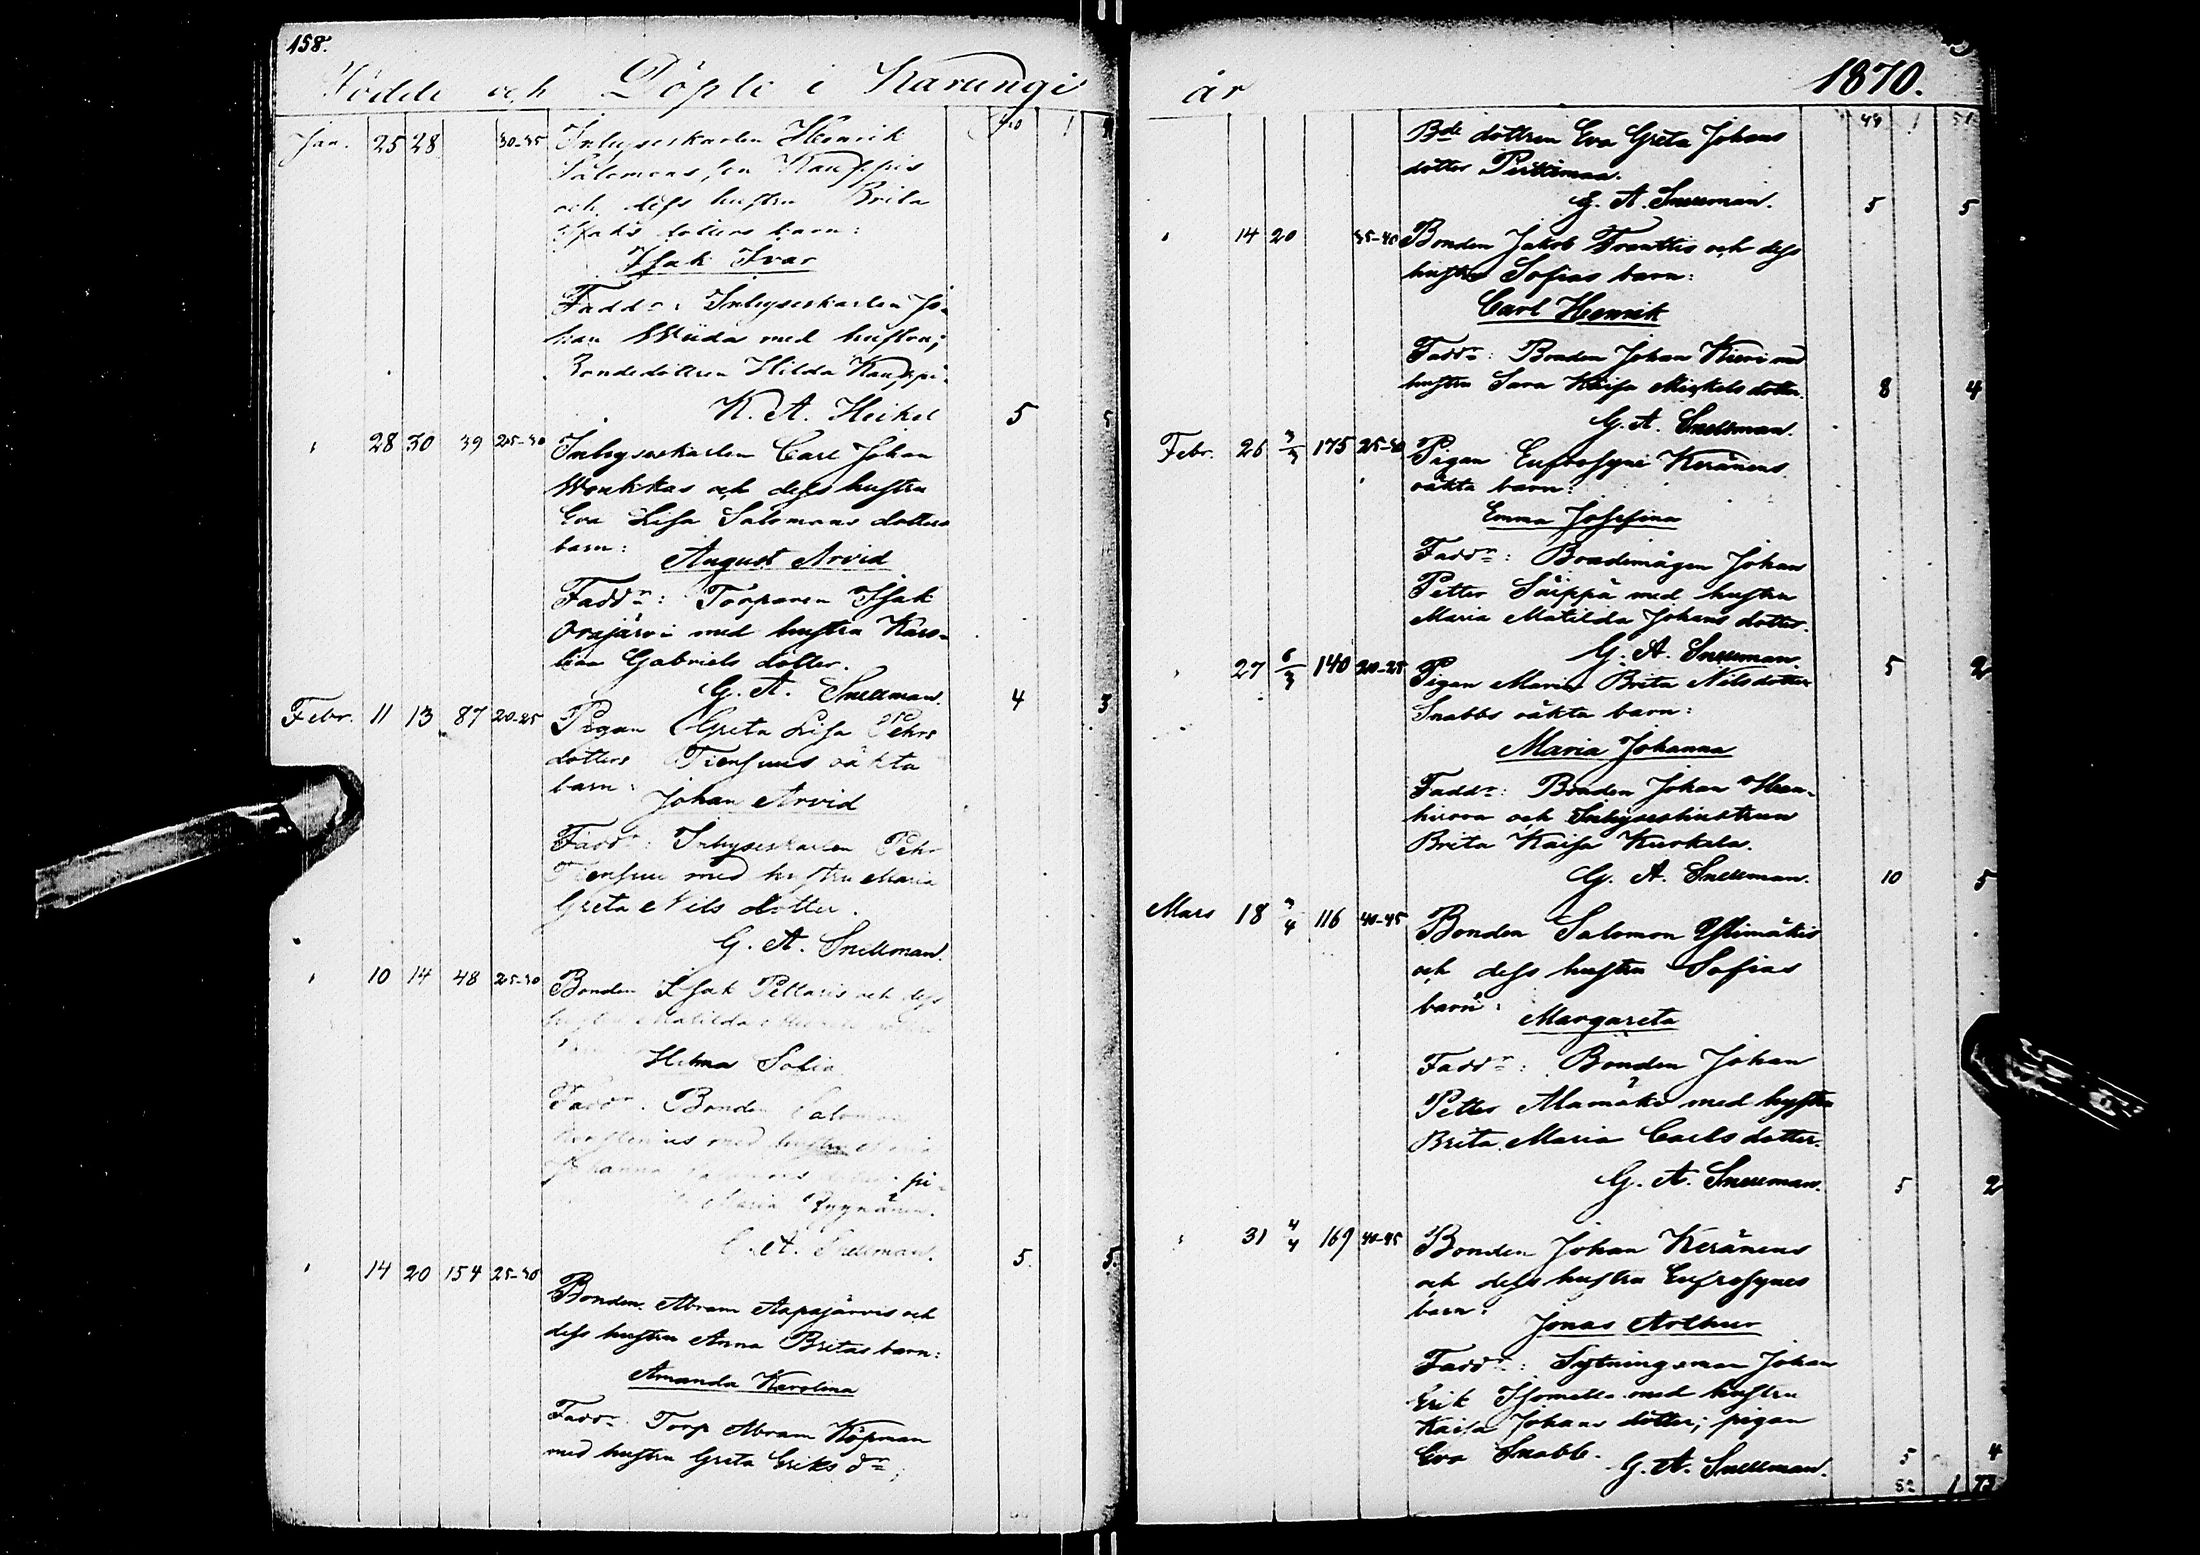 158.
Födde och Döpte i Karungi
Jan. 25 28 30-35 Inhyseskarlen Henrik
Salomons son Kauppis
och dess hustru Brita
Isaks dotters barn:
Isak Ivar
Faddr: Inhyseskarlen Jo-
han Wiida med hustru;
Bondedottren Hilda Kauppi.
K. A. Heikel 5 5
" 28 30 39 25-30 Inhyseskarlen Carl Johan
Woukkas och dess hustru
Eva Lisa Salomons dotters
barn:
August Arvid
Faddr: Torparen Isak
Orajärvi med hustru Karo-
lina Gabriels dotter.
G. A. Snellman. 4 3
Febr. 11 13 87 20-25 Pigan Greta Lisa Pehrs
dotters Tiensuus oäkta
barn:
Johan Arvid
Faddr: Inhyseskarlen Pehr
Tiensuu med hustru Maria
Greta Nils dotter.
G. A. Snellman.
" 10 14 48 25-30 Bonden Isak Peltaris och dess
hustru Matilda
Hilma Sofia
Faddr: Bonden Salomon
med hustru
Johanna pi-
Maria
G. A. Snellman. 5. 5.
" 14 20 154 25-30
Bonden Abram Aapajärvis och
dess hustru Anna Britas barn:
Amanda Karolina
Faddr: Torp Abram Köpman
med hustru Greta Eriks dr;
år 1870.
Bde dottren Eva Greta Johans
dotter
G. A. Snellman. 5 5
" 14 20 35-40 Bonden Jakob Franttis och dess
hustru Sofias barn:
Carl Henrik
Faddr: Bonden Johan Kieri med
hustru Sara Kaisa Mickels dotter. 8 4
G. A. Snellman.
Febr. 26 3/3 175 25-30 Pigan Eufrosyne Keränens
oäkta barn:
Emma Josefina
Faddr: Bondemågen Johan
Petter Säippä med hustru
Maria Matilda Johans dotter.
G. A. Snellman. 5 2
" 27 6/3 140 20-25 Pigan Maria Brita Nilsdotter
Snabbs oäkta barn:
Maria Johanna
Faddr: Bonden Johan Hean-
huova och Inhyseshustrun
Brita Kaisa Kurkela.
G. A. Snellman. 10 5
Mars 18 3/4 116 40-45 Bonden Salomon Ylimäkis
och dess hustru Sofias
barn:
Margareta
Faddr: Bonden Johan
Petter Alamäki med hustru
Brita Maria Carls dotter.
G. A. Snellman. 5 2
" 31 4/4 169 40-45 Bonden Johan Keränens
och dess hustru Eufrosynes
barn:
Jonas Arthur
Faddr: Sytningsman Johan
Erik Isometsä med hustru
Kaisa Johans dotter; pigan
Eva Snabb. 5 4
G. A. Snellman.
82 1 73